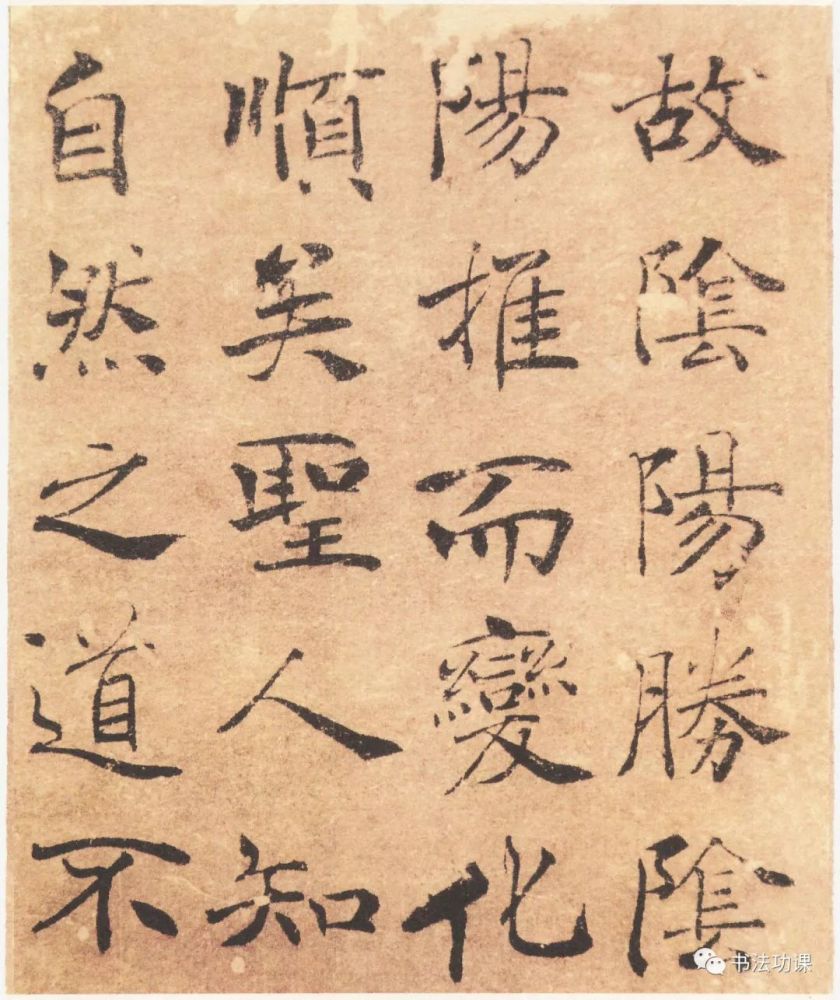 故陰陽勝陰
陽推而變化
順矣聖人知
自然之道不
书法功课